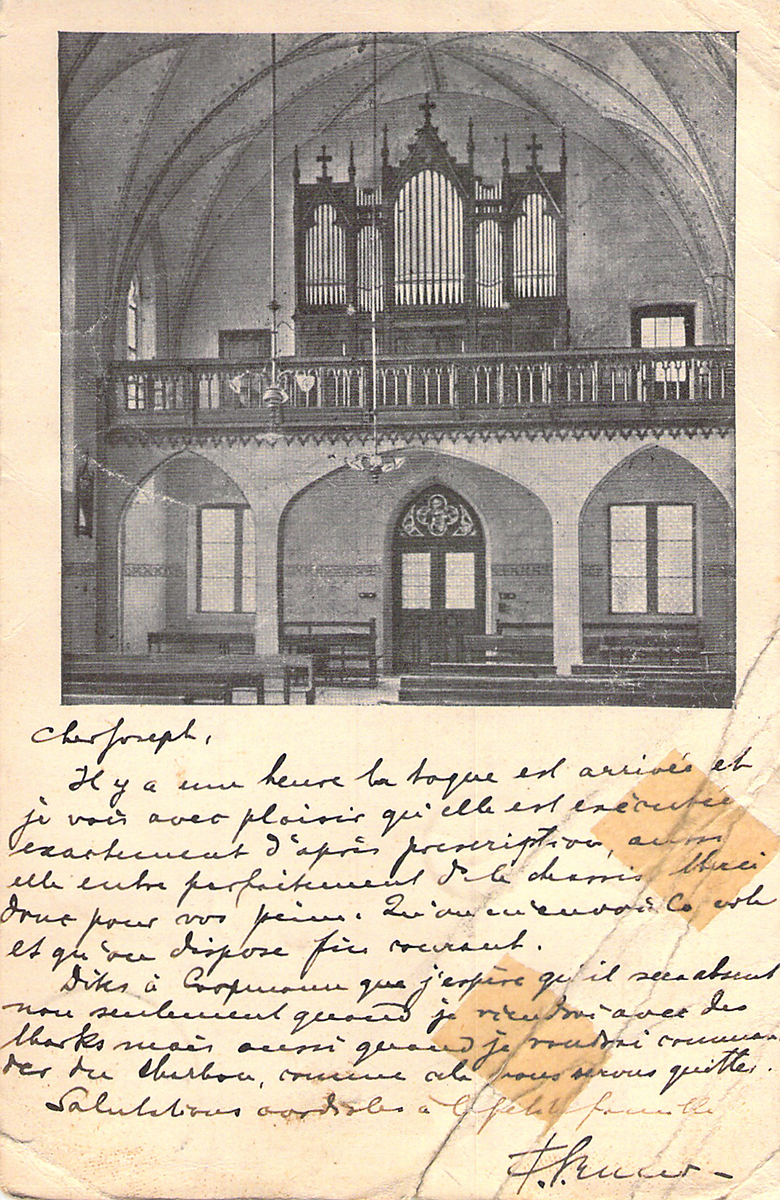 Cher Joseph,
Il y a une heure la toque est arrivée et
je vois avec plaisir qu'elle est exécutée
exactement d'après prescription, aussi
elle entre parfaitement d. le chassis. Merci
donc pour vos peine. Qu'on m'envoie la
et qu'on dispose fin courant.
Dites à Coopmann que j'espère qu'il sera absent
non seulement quand je viendrai avec des
Marks mais aussi quand je voudrai comman-
der du charbon, comme cela nous serons quittes.
Salutations cordiales à la petite famille